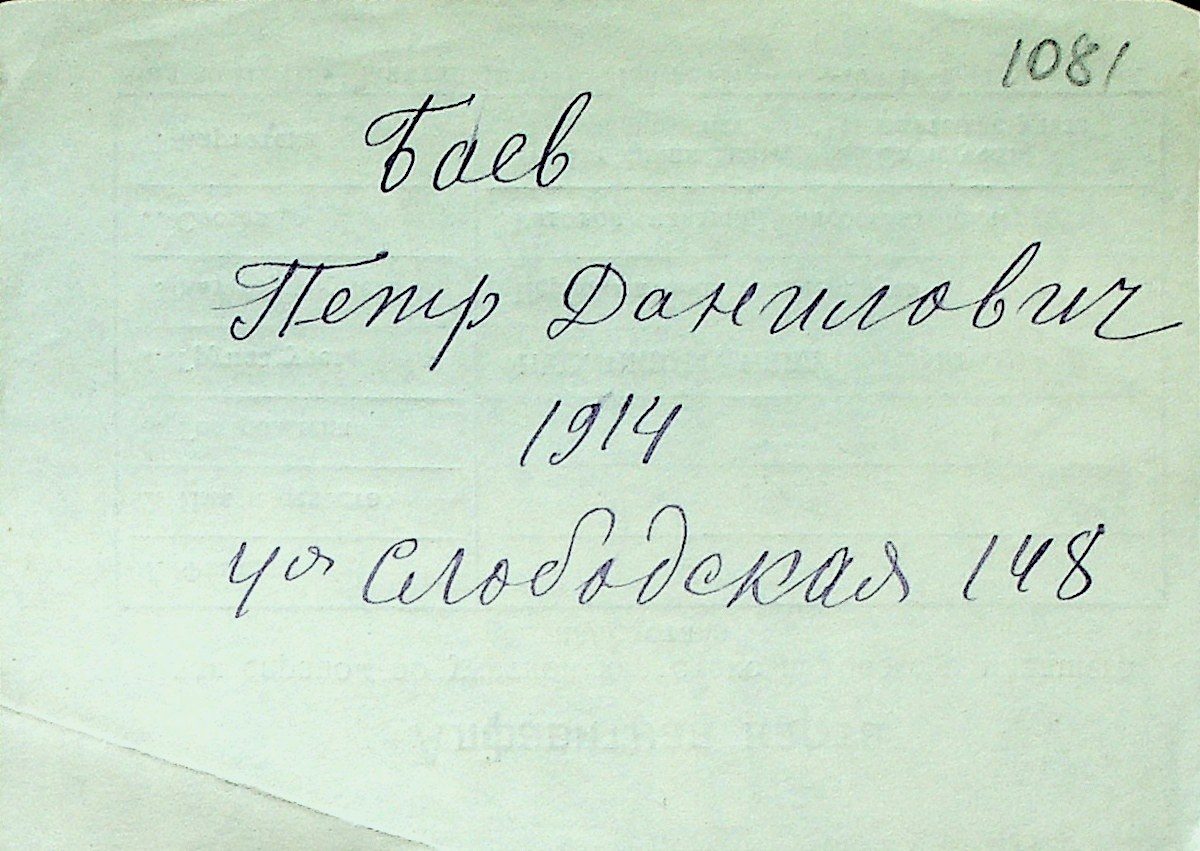 1081
Баев
Петр Данилович
1914
4ая Слободская 148